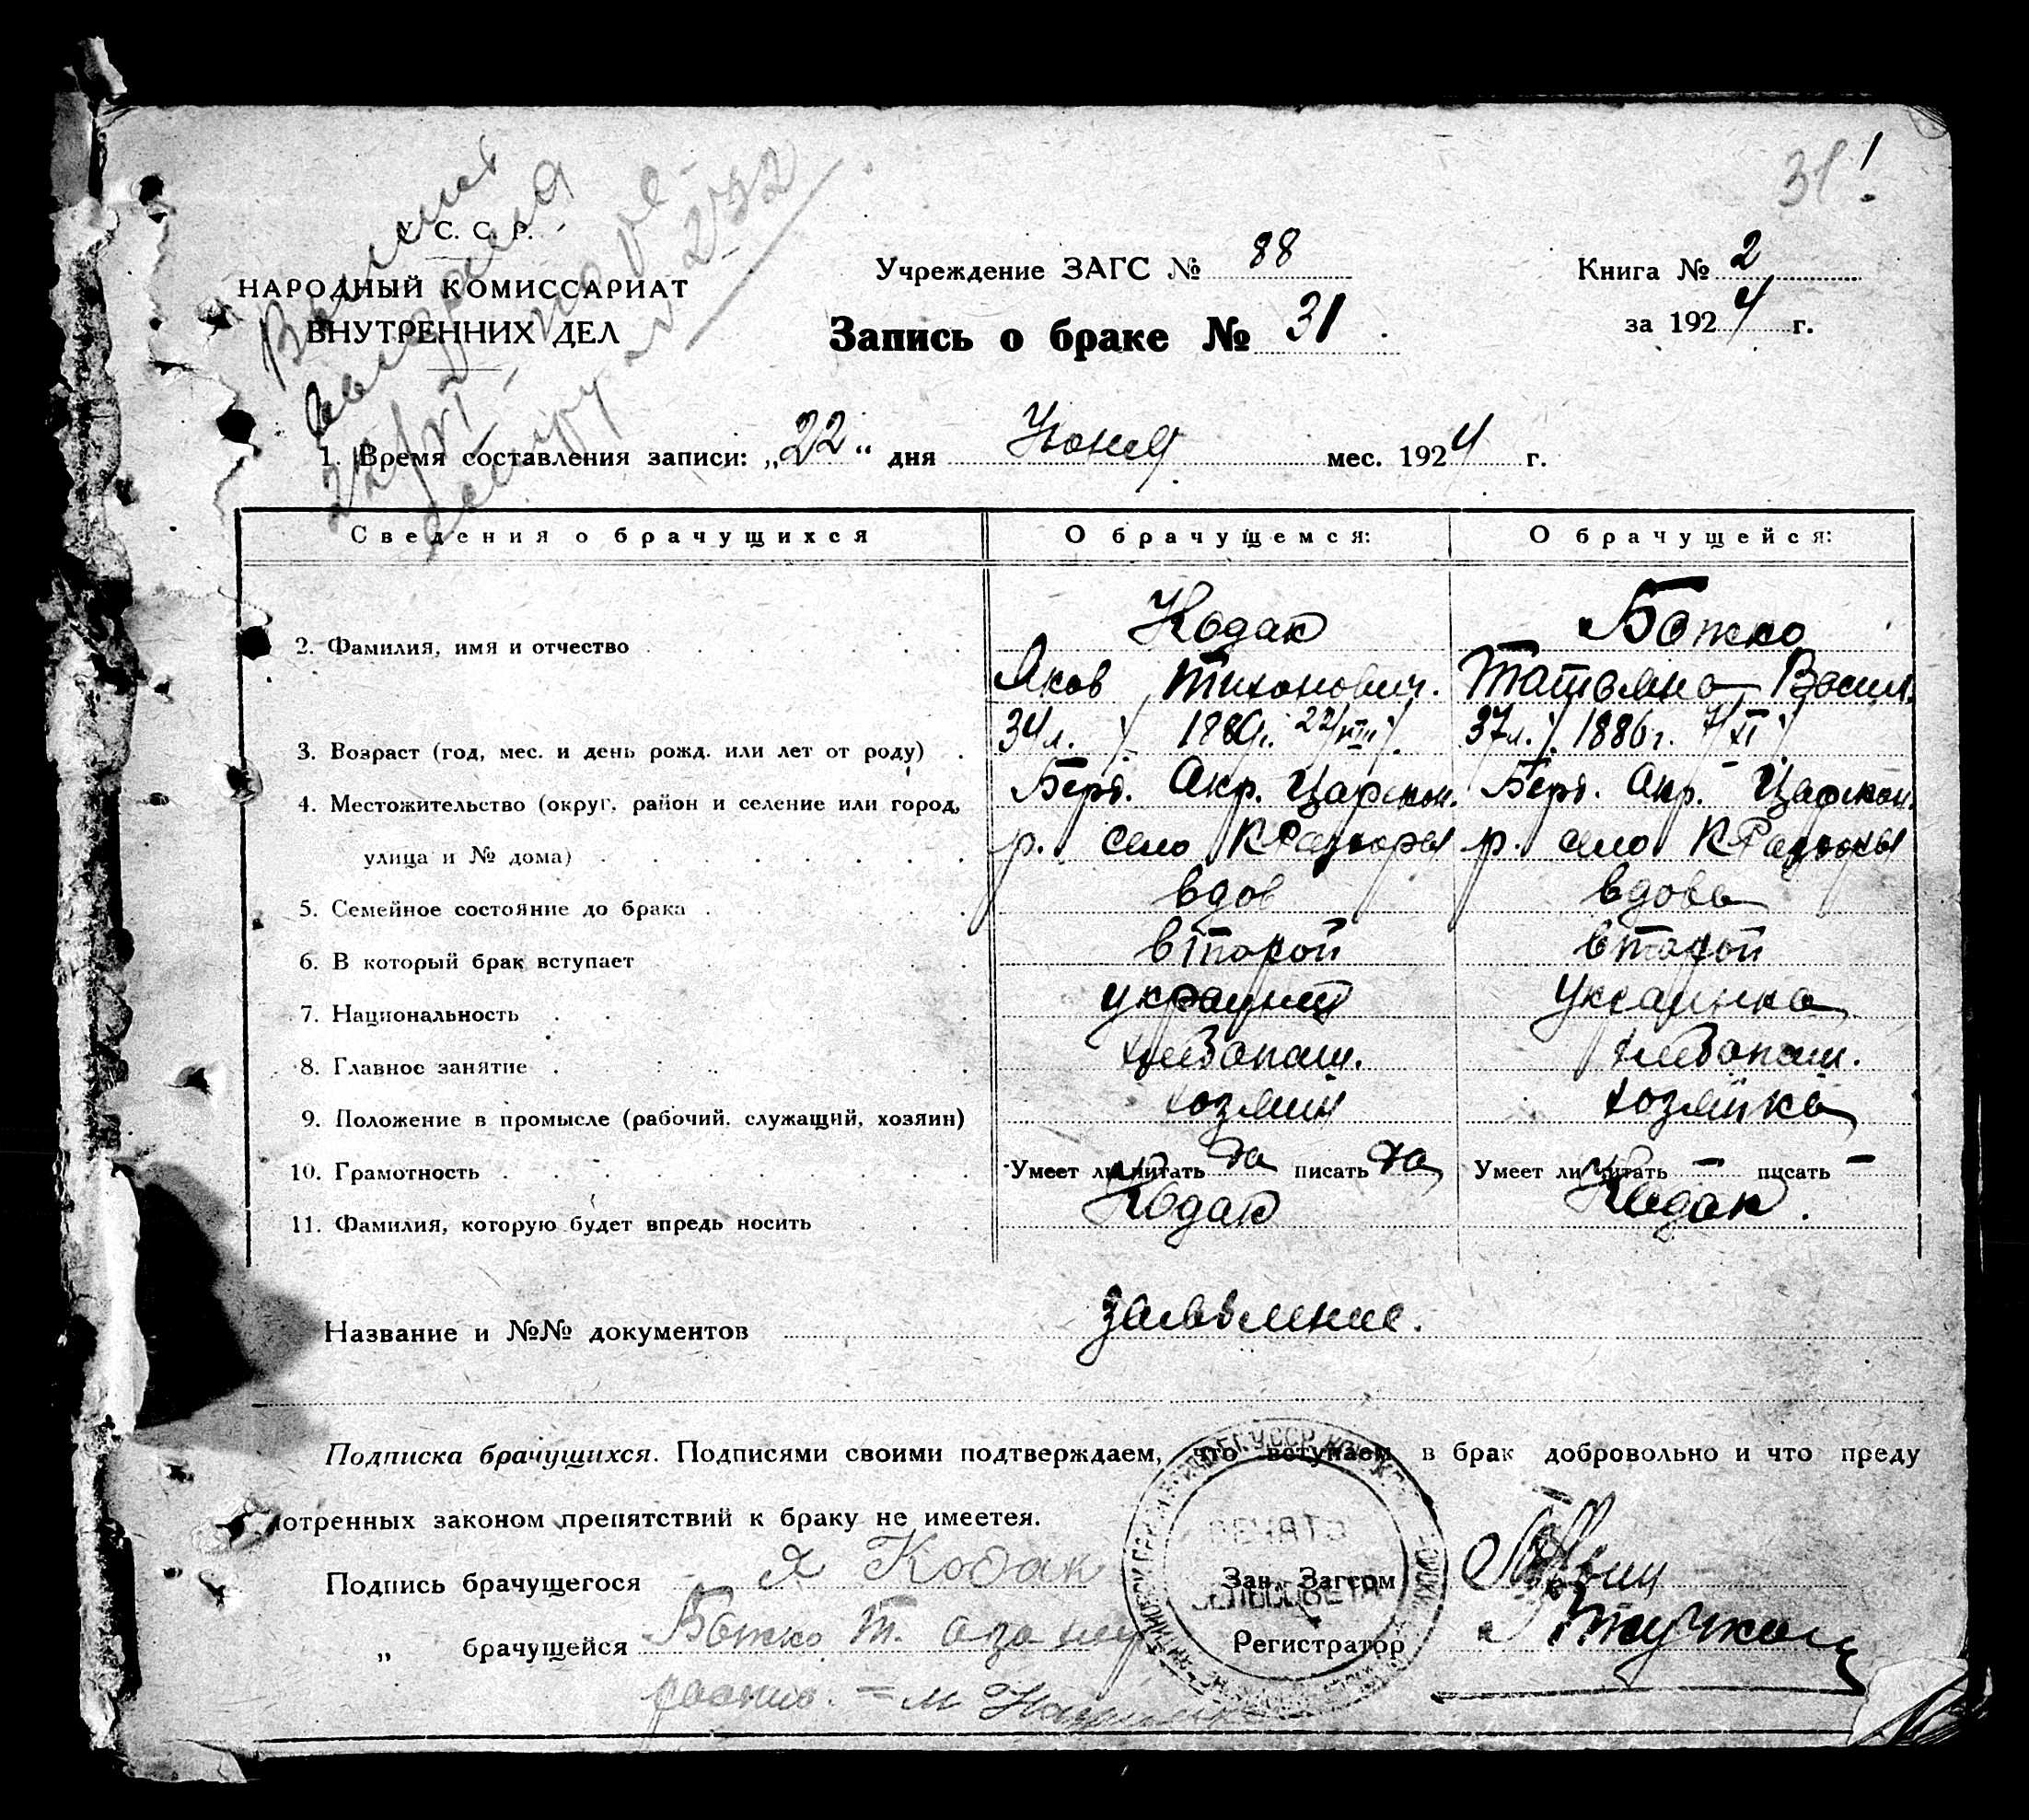 31!
У. С. С. Р.
НАРОДНЫЙ КОМИССАРИАТ
ВНУТРЕННИХ ДЕЛ
Учреждение ЗАГС № 88
Книга № 2
за 1924 г.
Запись о браке № 31
1. Время составления записи: „22“ дня Июня мес. 1924 г.
Сведения о брачущихся О брачущемся: О брачущейся:
2. Фамилия, имя и отчество Кодак Божко
Яков Тихонович. Татьяна Васил.
3. Возраст (год, мес. и день рожд. или лет от роду) 34 л. 22/VIII 37 л. 1886 г. 7/XI
4. Местожительство (округ, район и селение или город, Берд. Окр. Царекон. Берд. Окр. Царекон.
улица и № дома) р. село К Разоры р. село К Разоры
5. Семейное состояние до брака вдов вдова
6. В который брак вступает второй второй
7. Национальность украинец Украинка
8. Главное занятие хлебопаш. хлебопаш.
9. Положение в промысле (рабочий, служащий, хозяин) хозяин хозяйка
10. Грамотность Умеет ли читать да писать да Умеет ли читать — писать —
11. Фамилия, которую будет впредь носить Кодак Кодак.
Название и №№ документов заявление.
Подписка брачущихся. Подписями своими подтверждаем, что вступаем в брак добровольно и что преду
мотренных законом препятствий к браку не имеется.
Подпись брачущегося Я Кодак Зан. Загсом
„ брачущейся Божко Т. а за неу Регистратор
роспис. = м
ПЕЧАТЬ
СЕЛЬСОВЕТА